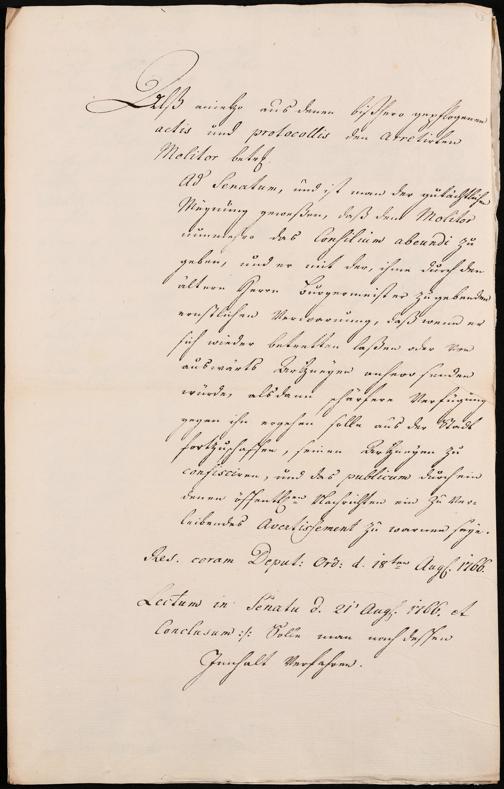 Alß anietzo aus denen bißhero gepflogenen
actis und protocollis den arretirten
Molitor betrf.
Ad Senatum, und ist man der gutächtliche
Meynung gewesen, daß dem Molitor
nunmehro das Consilium abeundi zu
geben, und er mit der, ihme durch den
ältern Herrn Burgermeister zu gebenden
ernstlichen Verwarnung, daß wenn er
sich wieder betretten laßen oder von
auswärts Artzneyen anhero senden
würde, alsdann schärfere Verfügung
gegen ihn ergehen solle aus der Stadt
fortzuschaffen, seine Artzneyen zu
confisciren, und das publicum durch ein
denen öffentl.en Nachrichten ein zu ver-
leibendes Avertissement zu warnen seye.
Res. coram Deput: Ord: d. 18ten Aug. 1766.
Lectum in Senatu d. 21t Aug. 1766. et
Conclusum :/: Solle man nach dessen
Innhalt verfahren.